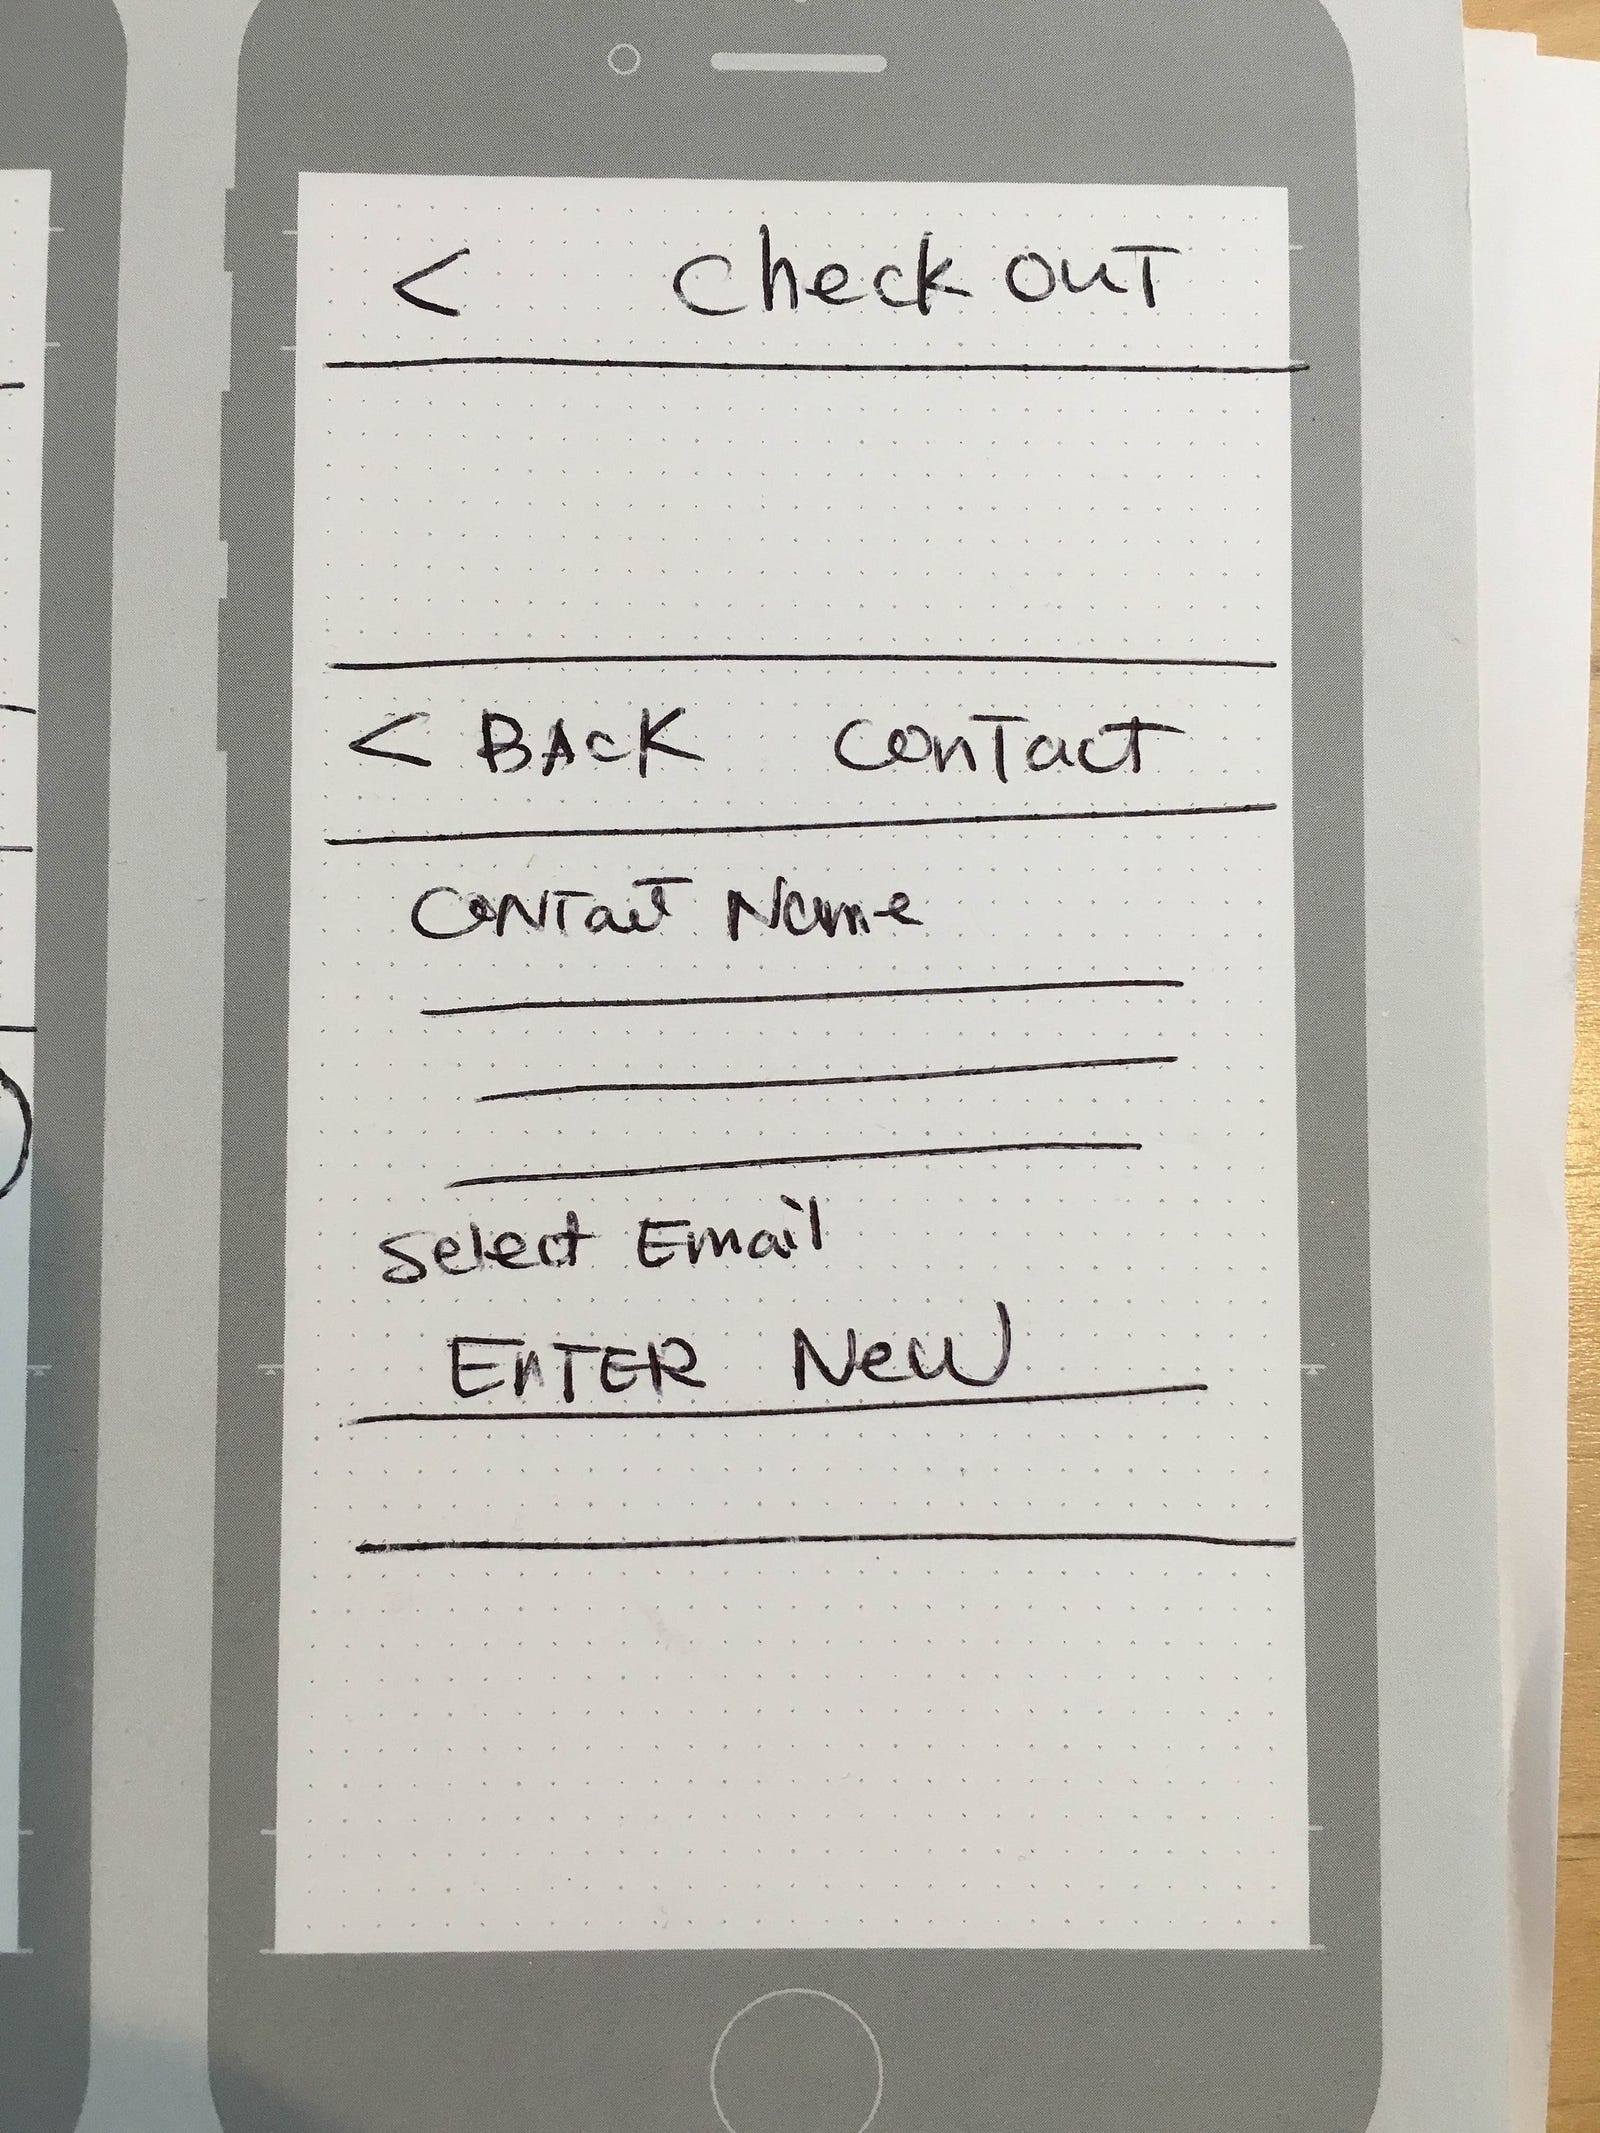 < Check OUT
< BACK Contact
Contact Name
Select Email
ENTER New